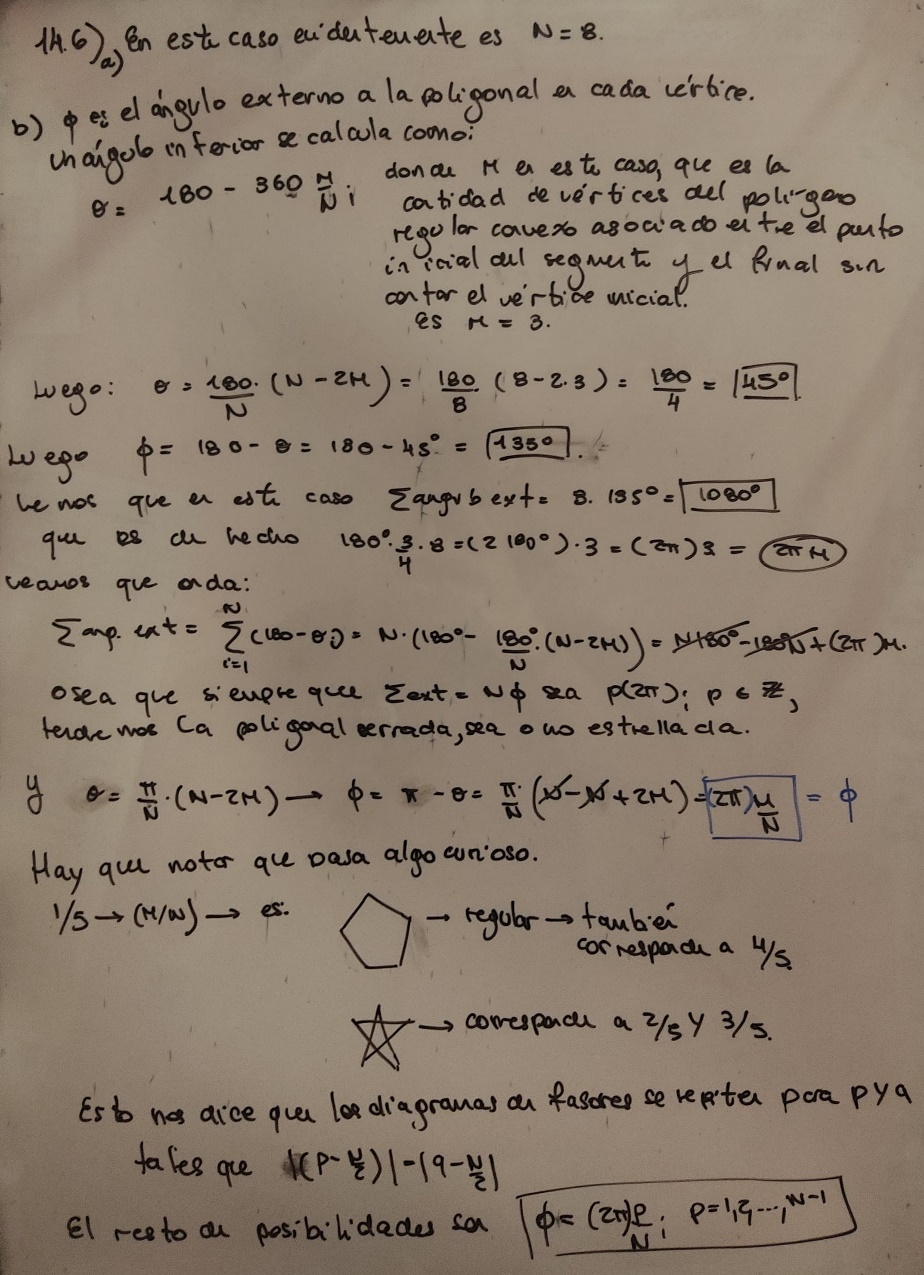 14.6) a) En este caso evidentemente es N = 8.
b) φ es el ángulo externo a la poligonal en cada vértice.
Un ángulo inferior se calcula como:
θ = 180 - 360 M/N ; donde M en este caso, que es la
cantidad de vértices del polígono
regular convexo asociado entre el punto
inicial del segmento y el final sin
contar el vértice inicial.
es M = 3.
Luego: θ = 180/N · (N - 2M) = 180/8 · (8 - 2·3) = 180/4 = 45°
Luego φ = 180 - θ = 180 - 45° = 135°.
Vemos que en este caso Σángulo ext = 8 · 135° = 1080°
que es de hecho 180° · 3/4 · 8 = (2 180°) · 3 = (2π) 3 = 2π M
veamos que onda:
Σang. ext = Σ_{i=1}^{N} (180 - θi) = N · (180° - 180°/N · (N - 2M)) = N180° - 180°N + (2π) M.
o sea que siempre que Σext = Nφ sea p(2π); p ∈ ℤ,
tendremos la poligonal cerrada, sea o no estrellada.
Y θ = π/N · (N - 2M) → φ = π - θ = π/N · (N - N + 2M) = (2π) M/N = φ
Hay que notar que pasa algo curioso.
1/5 → (M/N) → es: → regular → también
corresponde a 4/5.
→ corresponde a 2/5 y 3/5.
Esto nos dice que los diagramas de fasores se repiten para p y q
tales que |(p - N/2)| = |q - N/2|
El resto de posibilidades son φ = (2π) p/N ; p = 1, 2, ..., N-1